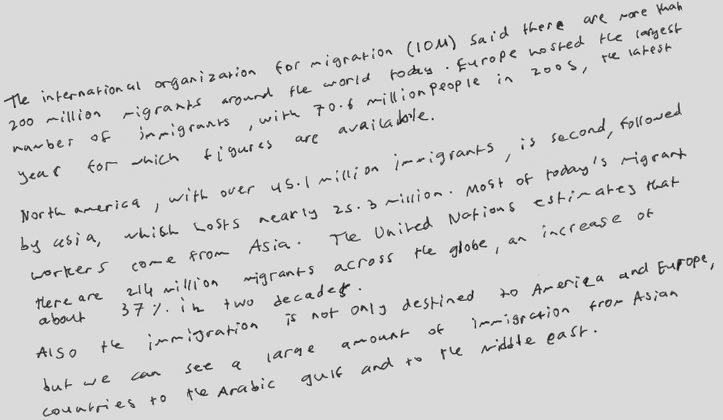 The international organization for migration (IOM) said there are more than
200 million migrants around the world today. Europe hosted the largest
number of immigrants, with 70.6 million People in 2005, the latest
year for which figures are available.
North america, with over 45.1 million immigrants, is second, followed
by asia, which hosts nearly 25.3 million. Most of today's migrant
workers come from Asia. The United Nations estimates that
there are 214 million migrants across the globe, an increase of
about 37% in two decades.
Also the immigration is not only destined to America and Europe,
but we can see a large amount of immigration from Asian
countries to the Arabic gulf and to the middle east.